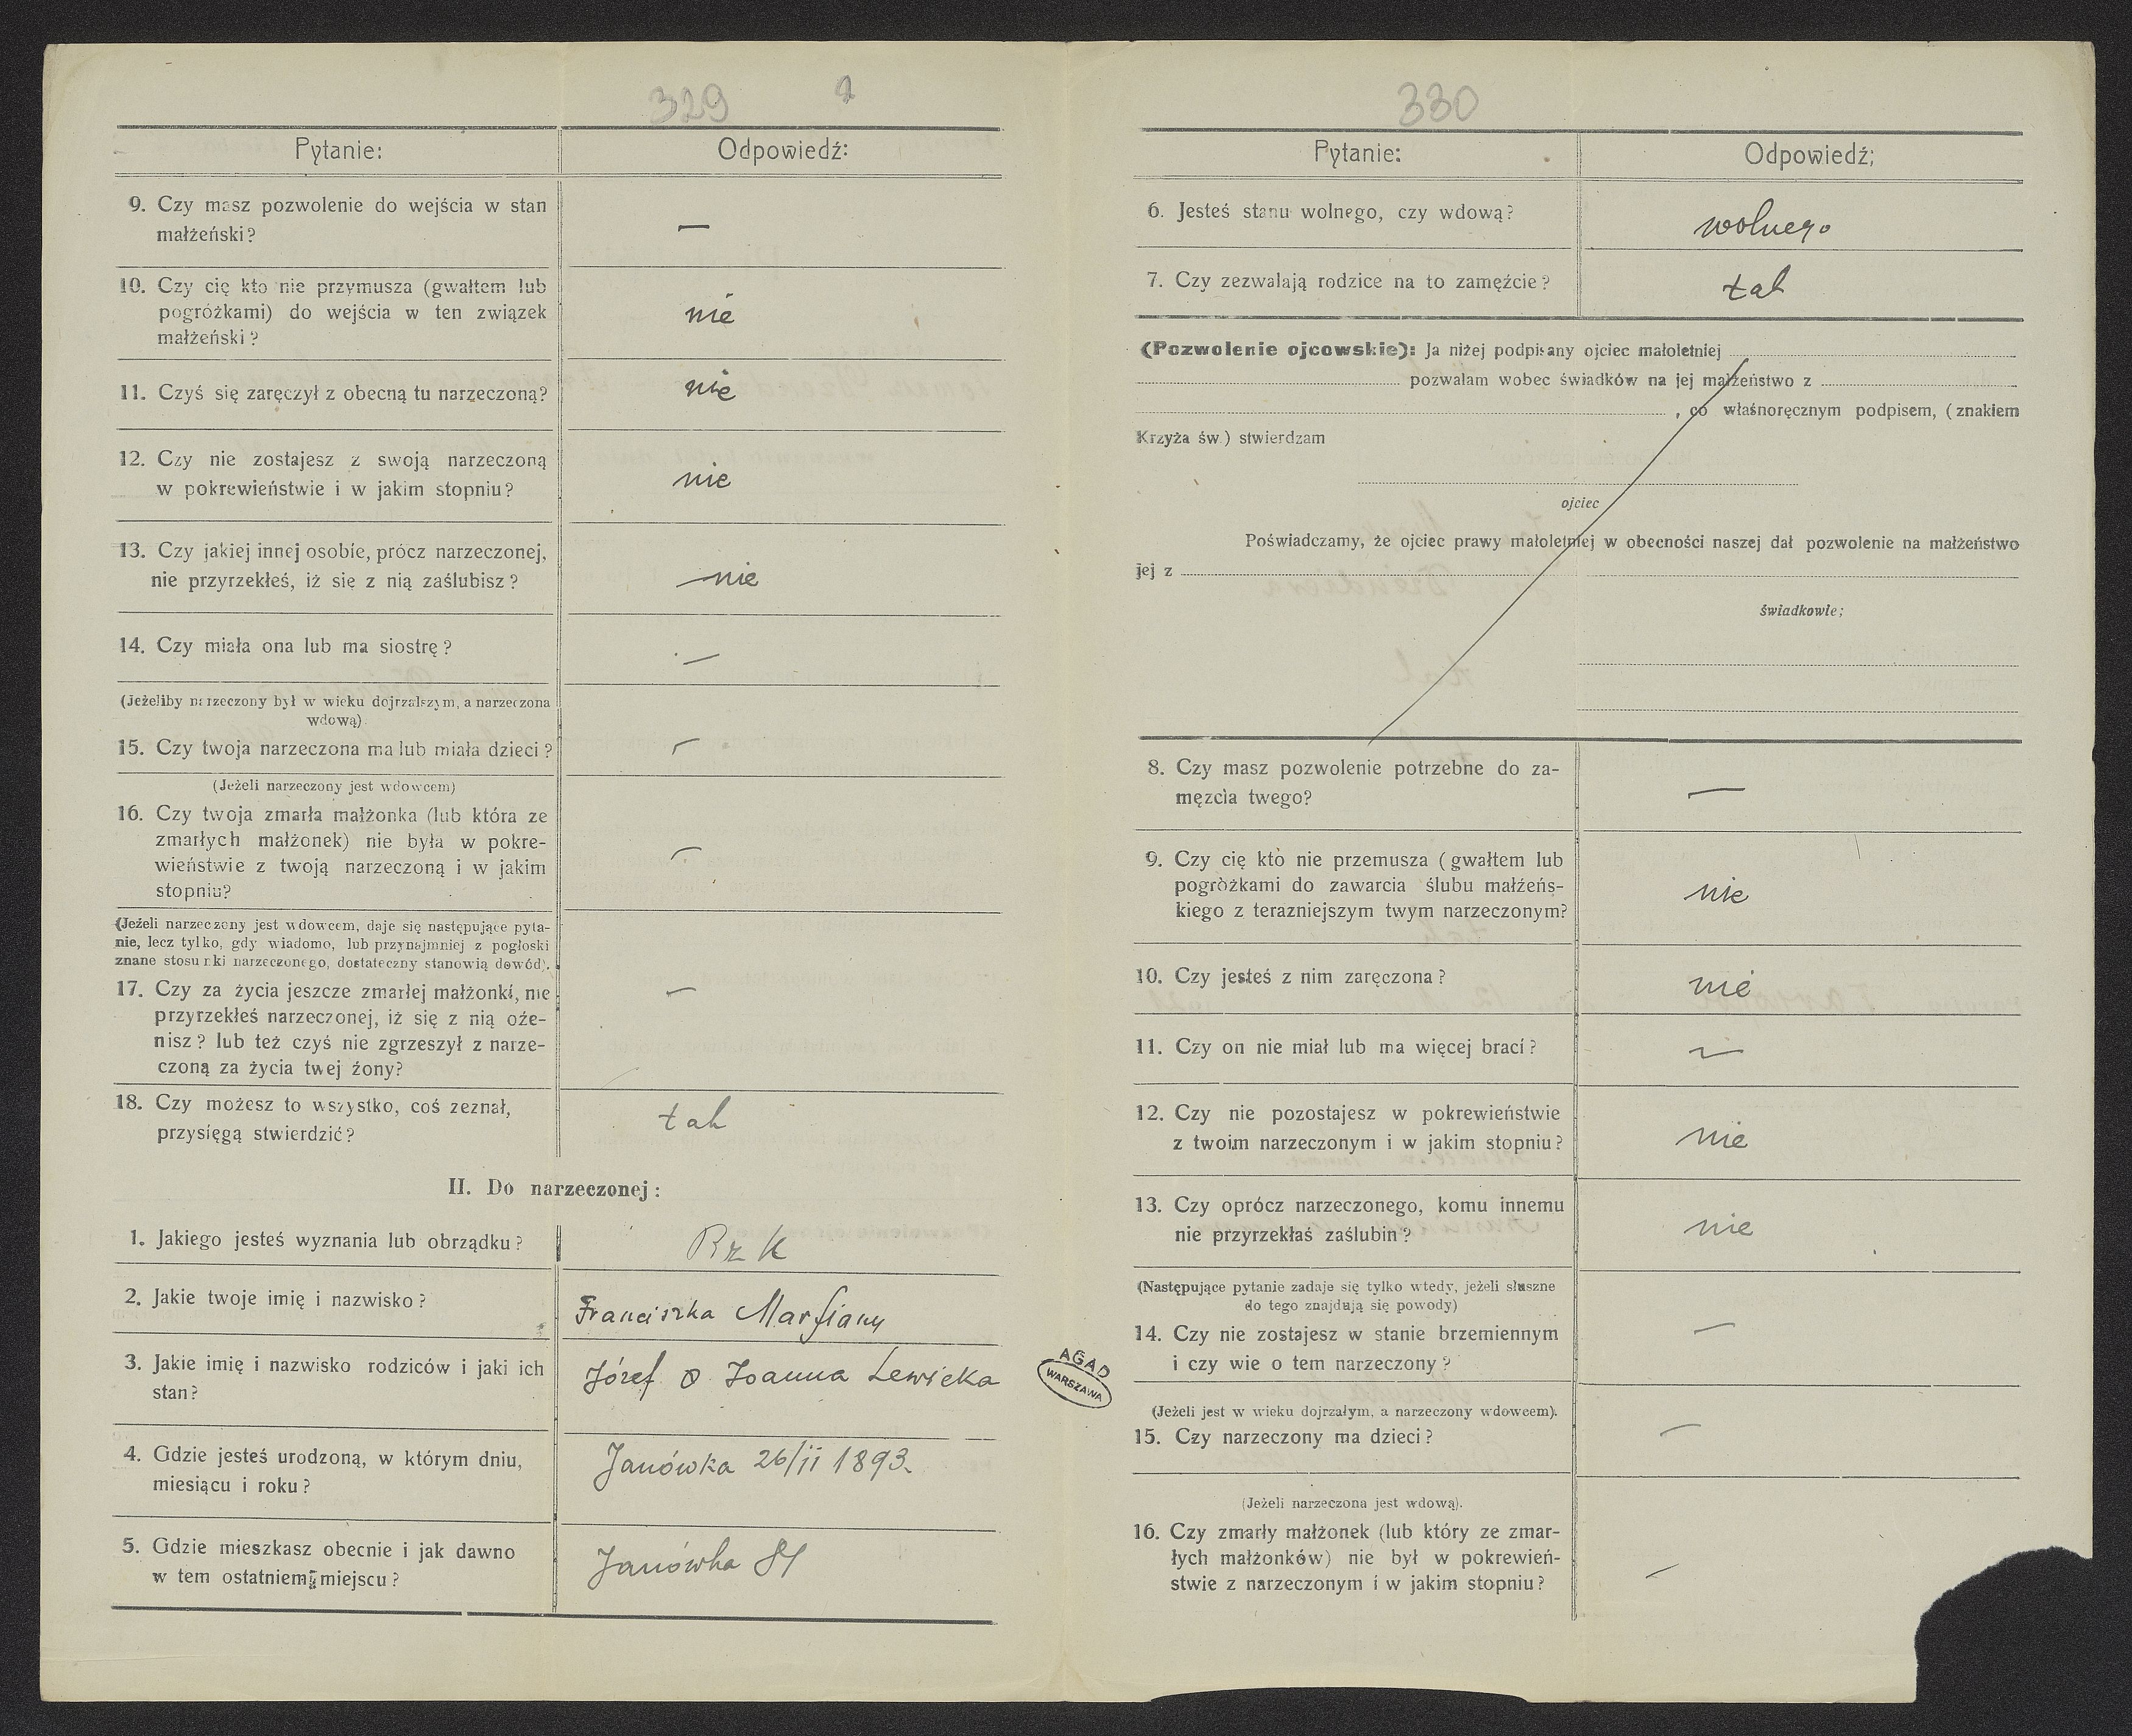 329
Pytanie: Odpowiedź:
9. Czy masz pozwolenie do wejścia w stan
małżeński? —
10. Czy cię kto nie przymusza (gwałtem lub
pogróżkami) do wejścia w ten związek nie
małżeński?
11. Czyś się zaręczył z obecną tu narzeczoną? nie
12. Czy nie zostajesz z swoją narzeczoną
w pokrewieństwie i w jakim stopniu? nie
13. Czy jakiej innej osobie, prócz narzeczonej,
nie przyrzekłeś, iż się z nią zaślubisz? nie
14. Czy miała ona lub ma siostrę? —
(Jeżeliby narzeczony był w wieku dojrzalszym, a narzeczona
wdową).
15. Czy twoja narzeczona ma lub miała dzieci? —
(Jeżeli narzeczony jest wdowcem)
16. Czy twoja zmarła małżonka (lub która ze
zmarłych małżonek) nie była w pokre-
wieństwie z twoją narzeczoną i w jakim —
stopniu?
(Jeżeli narzeczony jest wdowcem, daje się następujące pyta-
nie, lecz tylko, gdy wiadomo, lub przynajmniej z pogłoski
znane stosunki narzeczonego, dostateczny stanowią dowód).
17. Czy za życia jeszcze zmarłej małżonki, nie —
przyrzekłeś narzeczonej, iż się z nią oże-
nisz? lub też czyś nie zgrzeszył z narze-
czoną za życia twej żony?
18. Czy możesz to wszystko, coś zeznał, tak
przysięgą stwierdzić?
II. Do narzeczonej:
1. Jakiego jesteś wyznania lub obrządku? Rz K
2. Jakie twoje imię i nazwisko? Franciszka
3. Jakie imię i nazwisko rodziców i jaki ich Józef Joanna Lewicka
stan?
4. Gdzie jesteś urodzoną, w którym dniu, Janówka 26/II 1893
miesiącu i roku?
5. Gdzie mieszkasz obecnie i jak dawno Janówka
w tem ostatniem miejscu?
AGAD
WARSZAWA
330
Pytanie: Odpowiedź;
6. Jesteś stanu wolnego, czy wdową? wolnego
7. Czy zezwalają rodzice na to zamężcie? tak
(Pozwolenie ojcowskie): Ja niżej podpisany ojciec małoletniej
pozwalam wobec świadków na jej małżeństwo z
, co własnoręcznym podpisem, (znakiem
Krzyża św.) stwierdzam
ojciec
Poświadczamy, że ojciec prawy małoletniej w obecności naszej dał pozwolenie na małżeństwo
jej z
świadkowie;
8. Czy masz pozwolenie potrzebne do za-
męzcia twego? —
9. Czy cię kto nie przemusza (gwałtem lub
pogróżkami do zawarcia ślubu małżeńs- nie
kiego z terazniejszym twym narzeczonym?
10. Czy jesteś z nim zaręczona? nie
11. Czy on nie miał lub ma więcej braci? —
12. Czy nie pozostajesz w pokrewieństwie
z twoim narzeczonym i w jakim stopniu? nie
13. Czy oprócz narzeczonego, komu innemu
nie przyrzekłaś zaślubin? nie
(Następujące pytanie zadaje się tylko wtedy, jeżeli słuszne
do tego znajdują się powody)
14. Czy nie zostajesz w stanie brzemiennym —
i czy wie o tem narzeczony?
(Jeżeli jest w wieku dojrzałym, a narzeczony wdowcem).
15. Czy narzeczony ma dzieci? —
(Jeżeli narzeczona jest wdową).
16. Czy zmarły małżonek (lub który ze zmar-
łych małżonków) nie był w pokrewień-
stwie z narzeczonym i w jakim stopniu? —